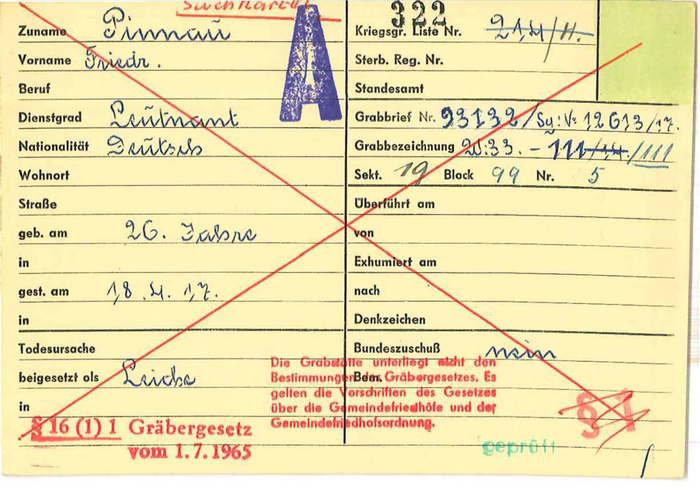 Suchkartei
322
Zuname Pinnau
Kriegsgr. Liste Nr. 214/II.
Vorname Friedr.
Sterb. Reg. Nr.
A
Beruf
Standesamt
Dienstgrad Leutnant
Grabbrief Nr. 93132/Sg: V: 12613/17.
Nationalität Deutsch
Grabbezeichnung W:33. - 111/14./111
Wohnort
Sekt. 19 Block 99 Nr. 5
Straße
Überführt am
geb. am 26. Jahre
von
in
Exhumiert am
gest. am 18. 4. 17.
nach
in
Denkzeichen
Todesursache
Bundeszuschuß nein
beigesetzt als Leiche
Bem.
in
Die Grabstätte unterliegt nicht den
Bestimmungen des Gräbergesetzes. Es
gelten die Vorschriften des Gesetzes
über die Gemeindefriedhöfe und der
Gemeindefriedhofsordnung.
§ 16 (1) 1 Gräbergesetz
vom 1.7.1965
§ 1
geprüft